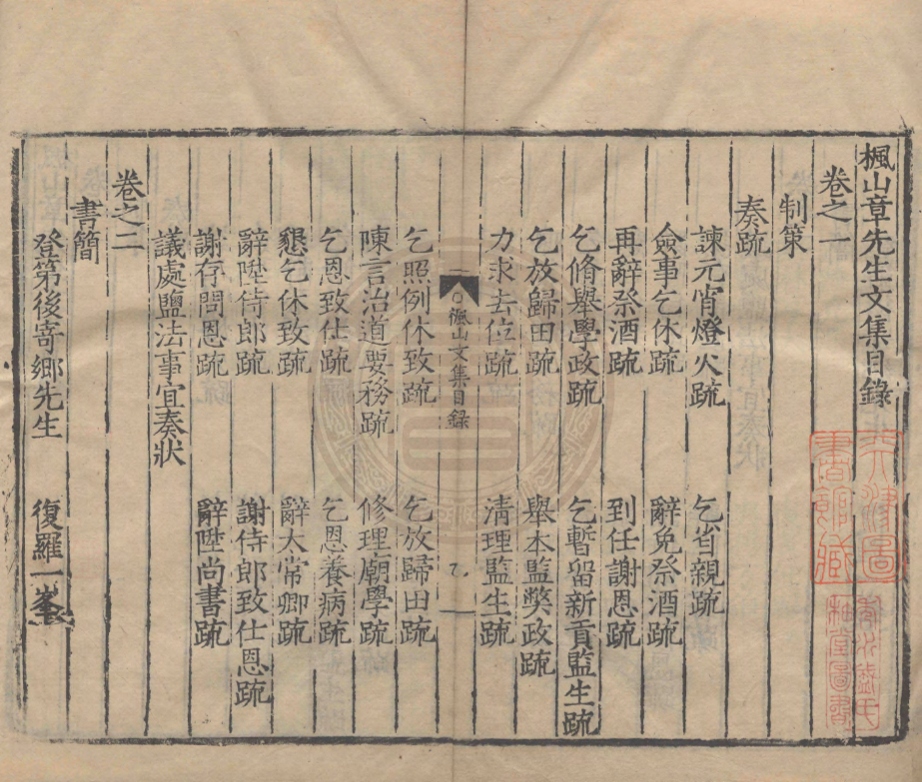 楓山章先生文集目錄
卷之一
制策
奏疏
諫元宵燈火疏 乞省親疏
僉事乞休疏 辭免祭酒疏
再辭祭酒疏 到任謝恩疏
乞脩舉學政疏 乞暫留新貢監生疏
乞放歸田疏 舉本監獘政疏
力求去位疏 清理監生疏
楓山文集目錄
乞照例休致疏 乞放歸田疏
陳言治道要務疏 修理廟學疏
乞恩致仕疏 乞恩養病疏
懇乞休致疏 辭太常卿疏
辭陞侍郎疏 謝侍郎致仕恩疏
謝存問恩疏 辭陞尚書疏
議處鹽法事宜奏狀
卷之二
書簡
登第後寄鄉先生 復羅一峯